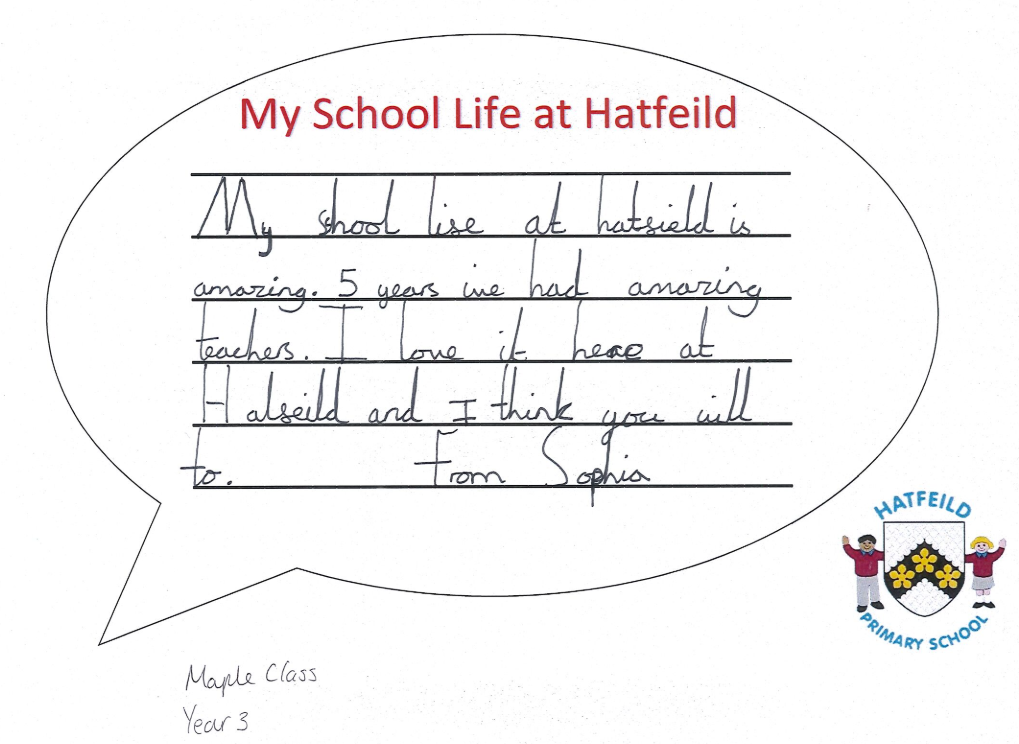 My School Life at Hatfeild
My school life at hatfield is
amazing. 5 years ive had amazing
teachers. I love it here at
Hatfeild and I think you will
to. From Sophia
HATFEILD
PRIMARY SCHOOL
Maple Class
Year 3